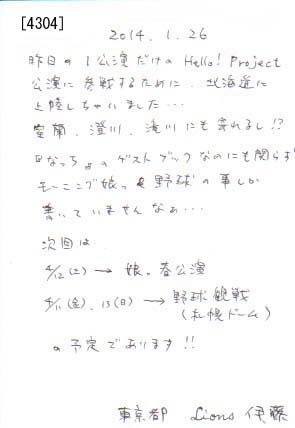 [4304]
2014.1.26
昨日の1公演だけのHello! Project
公演に参戦するために、北海道に
上陸しちゃいました…
室蘭、澄川、滝川にも来れるし!?
なっちの ゲストブックなのにも関らず
モーニング娘。と野球の事しか
書いていませんなぁ…
次回は
4/12(土) → 娘。春公演
4/11(金)、13(日) → 野球観戦
(札幌ドーム)
の予定であります!!
東京都 Lions 伊藤